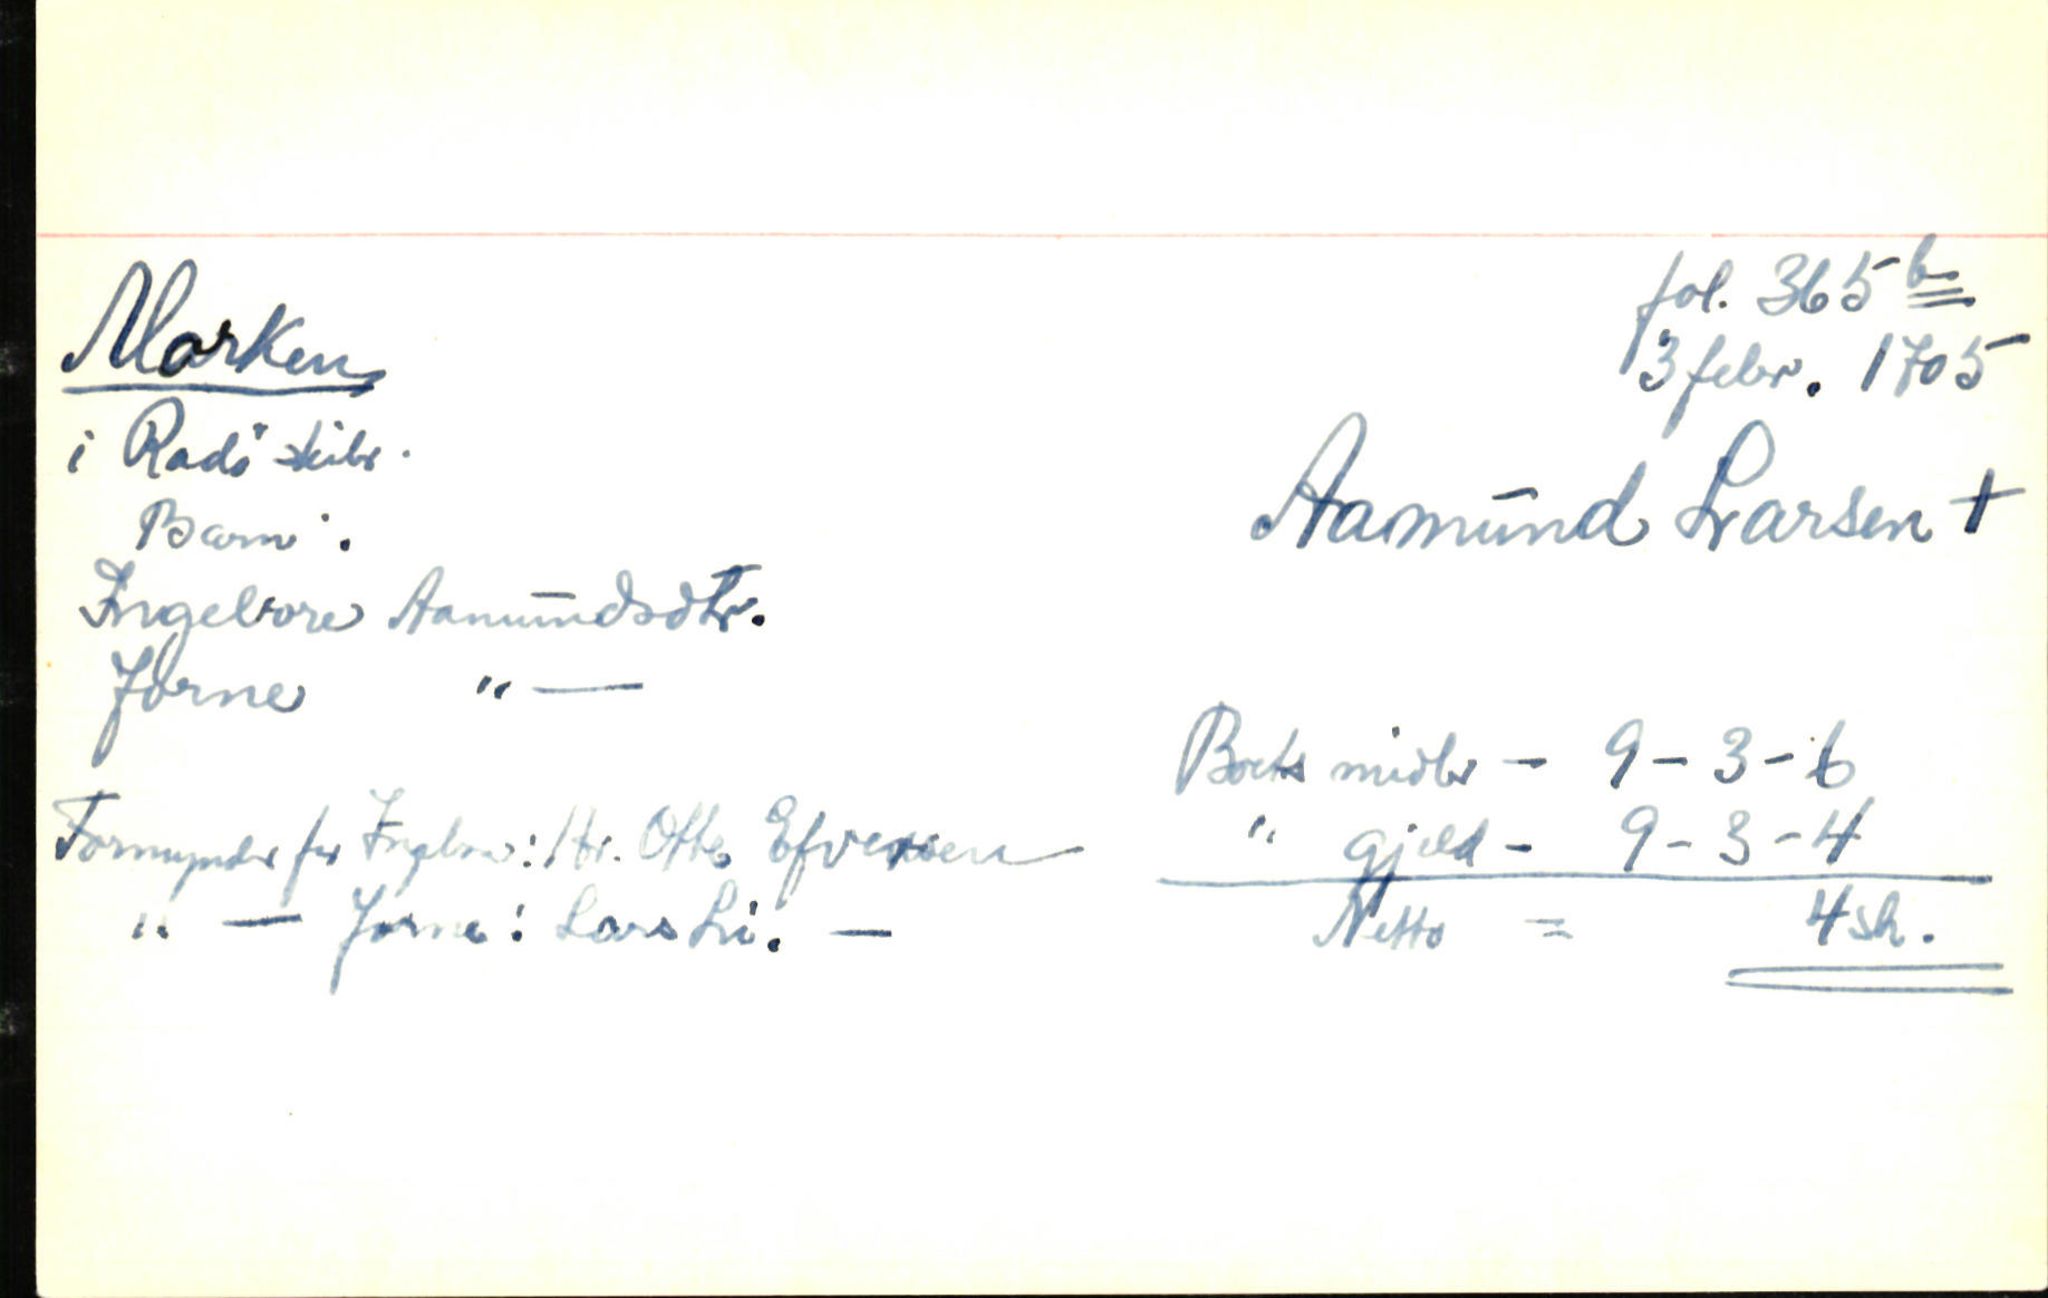 Marken
i Radö skibr.
Barn:
Ingeborre Aamundsdtr.
Jorne " —
Formynder for Ingeborr: Hr. Otto Efvensen
" — Jorne: Lars Li. —
fol. 365 b
3 febr. 1705
Aamund Larsen +
Boets midler — 9 - 3 - 6
" gjeld - 9 - 3 - 4
Netto = 4 sk.